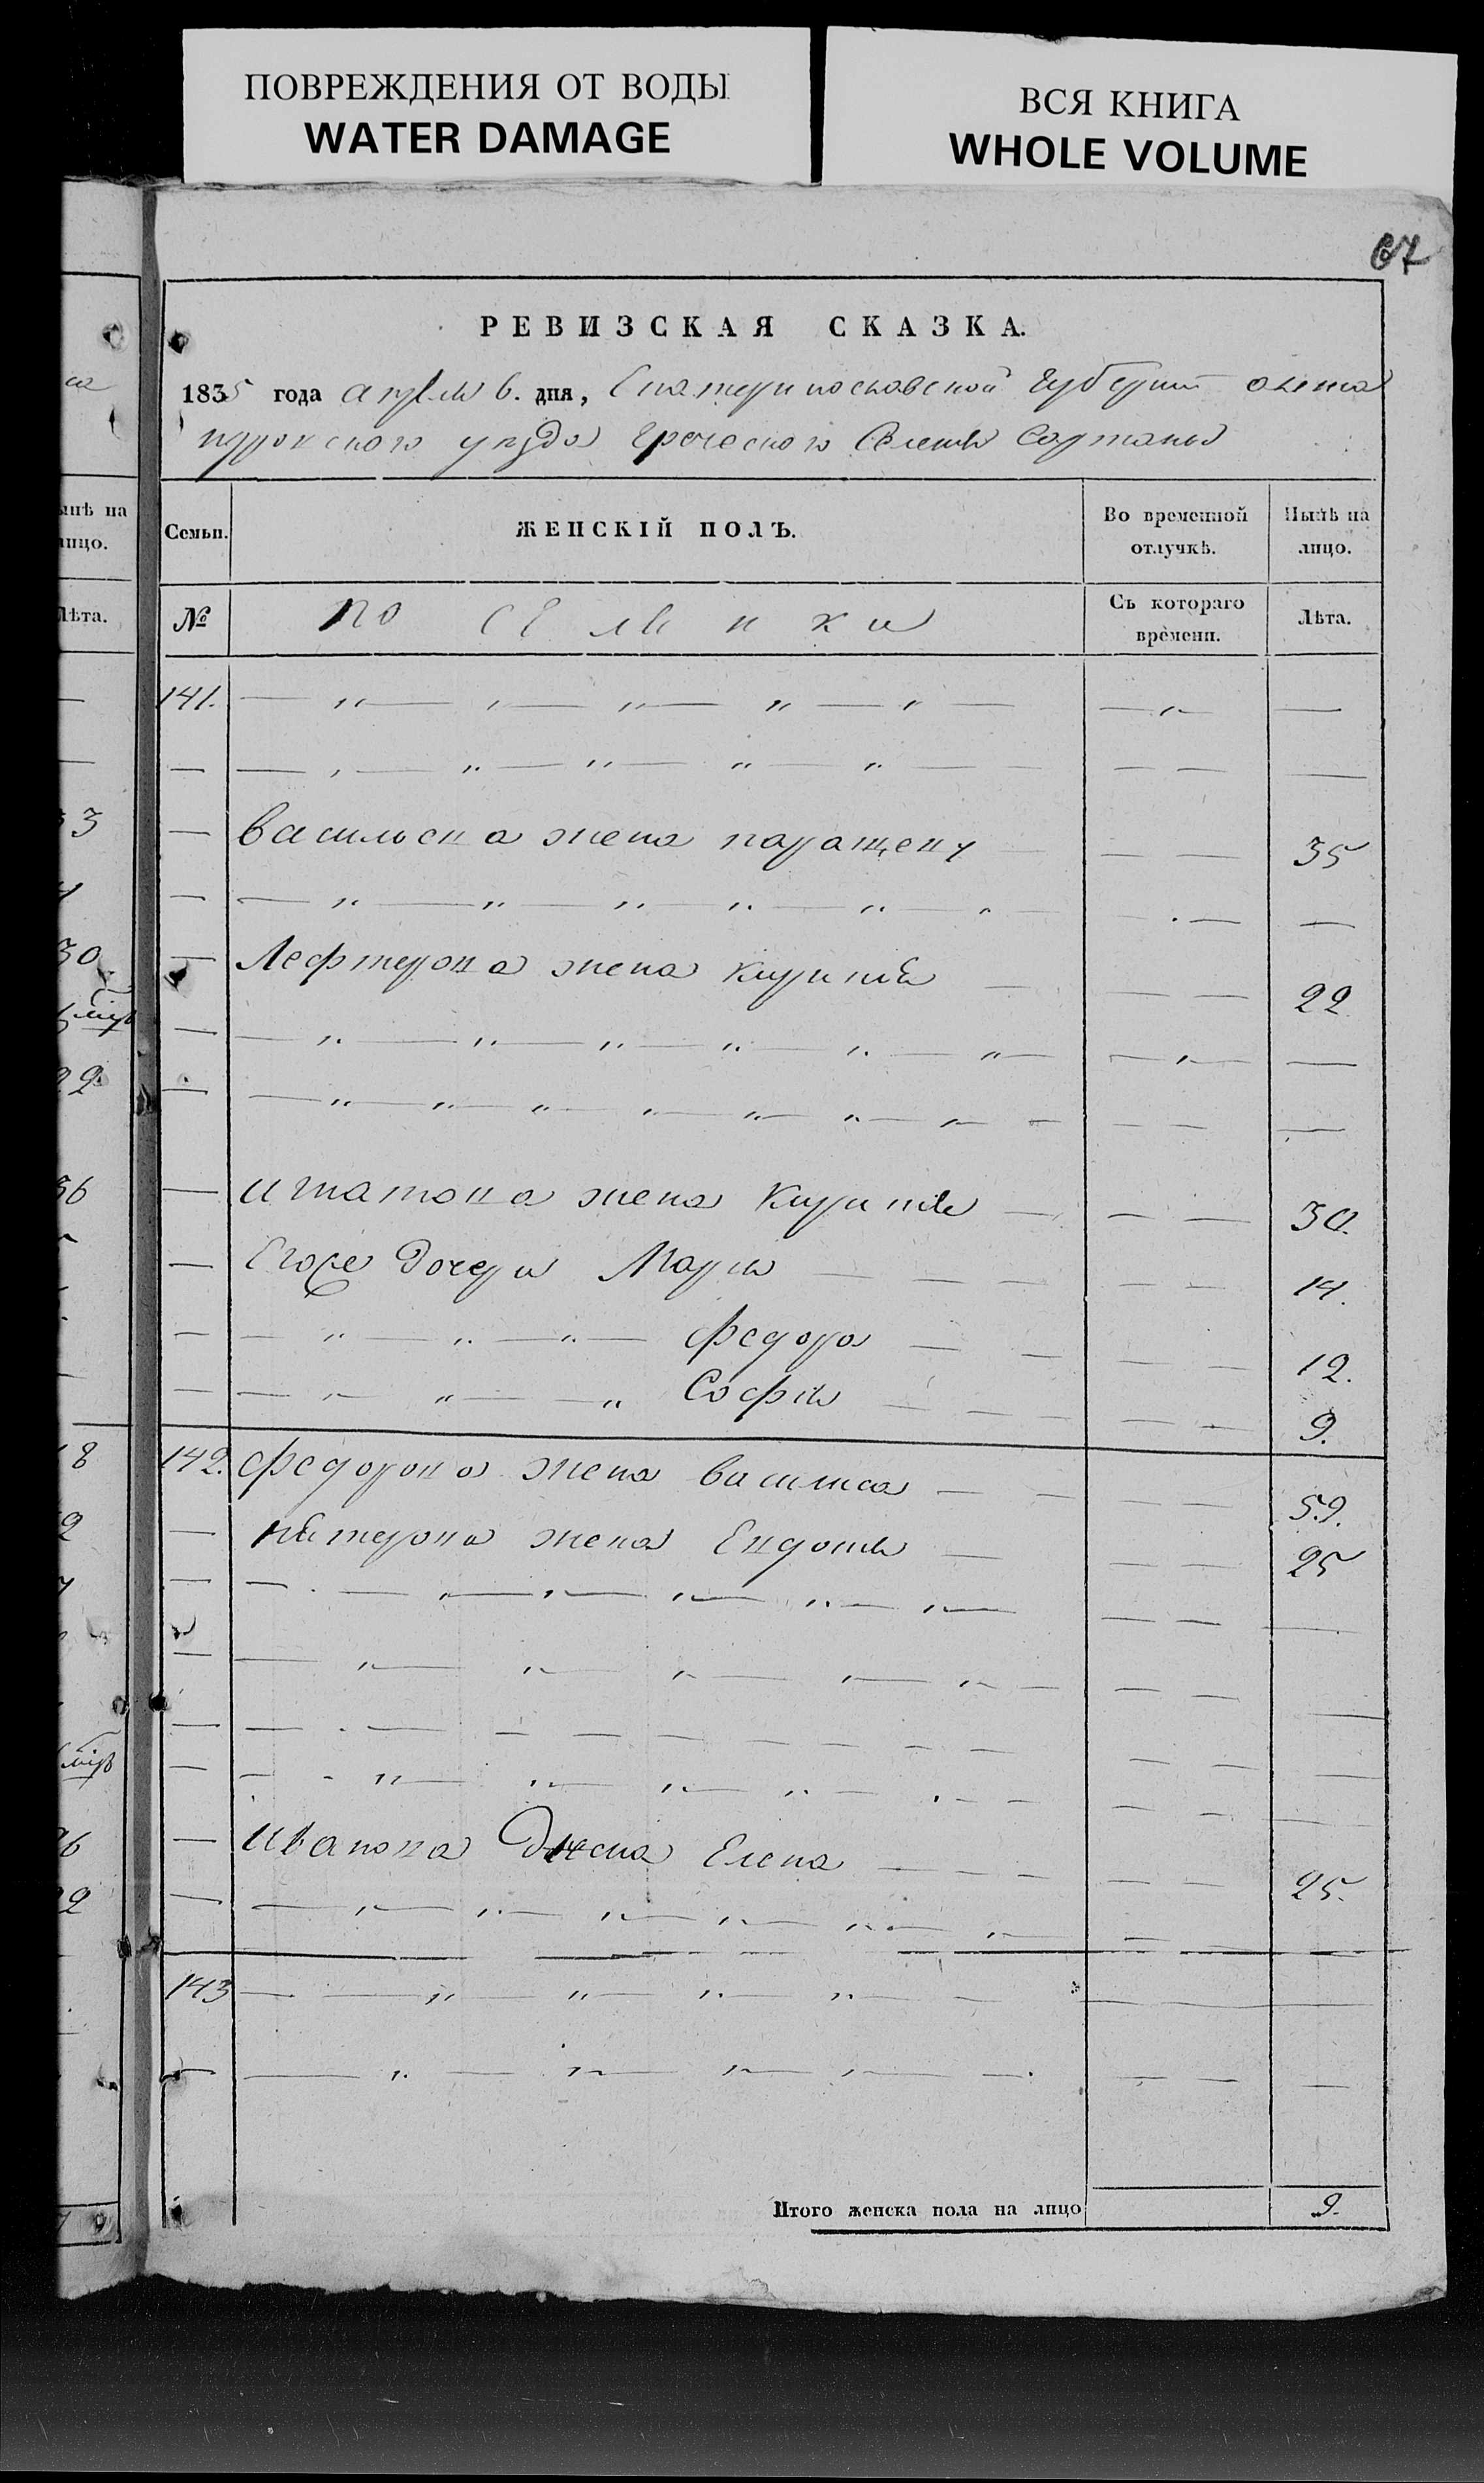 ПОВРЕЖДЕНИЯ ОТ ВОДЫ
WATER DAMAGE
ВСЯ КНИГА
WHOLE VOLUME
67
РЕВИЗСКАЯ СКАЗКА.
1835 года апреля 6. дня, Екатеринославской губернии алекса
ндровского уезда греческого Селения Сартаны
Семьи.
ЖЕНСКІЙ ПОЛЪ.
Во временной отлучкѣ.
Нынѣ на лицо.
№
поселянки
Съ котораго времени.
Лѣта.
141.
васильева жена паращеву 35
Лефтерова жена Кирикия 22
игнатова жена Кирикия 30.
Егоже дочери Мария 14.
федора 12.
София 9.
142. федорова жена василиса 59.
жена Евдокия 25
иванова жена Елена 25.
143
Итого женска пола на лицо 9.
ынѣ на
лицо.
Лѣта.